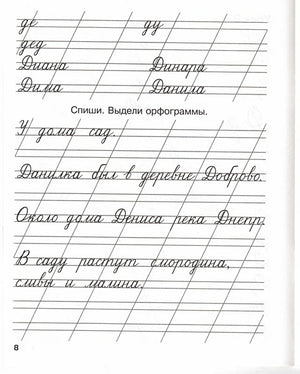 де ду
дед
Диана Динара
Дима Данила
Спиши. Выдели орфограммы.
У дома сад.
Данилка был в деревне Доброво.
Около дома Дениса река Днепр.
В саду растут смородина,
сливы и малина.
8